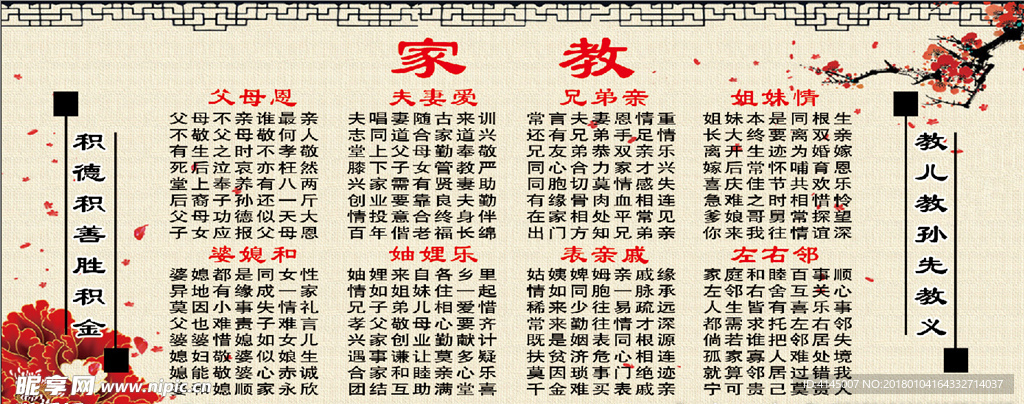 家 教
积德积善胜积金
教儿教孙先教义
父母恩
父母不亲谁最亲
不敬父母敬何人
有生之时不孝敬
死后泣哀亦枉然
堂上奉养有八两
后裔子孙还一斤
父母功德似天大
子女应报父母恩
夫妻爱
夫唱妻随古来训
志同道合家道兴
堂上父母勤奉敬
膝下子女管教严
兴家需有贤妻助
创业要靠良夫勤
情投意合终身伴
百年偕老福长绵
兄弟亲
常言夫妻恩情重
还有兄弟手足情
兄友弟恭双亲乐
同心合力家才兴
同胞切莫情感失
有缘骨肉血相连
在家相处平常见
出门方知兄弟亲
姐妹情
姐妹本是同根生
长大终要离双亲
离开生迹为婚嫁
嫁后常怀哺育恩
喜庆佳节共欢乐
急难之时相惜怜
爹娘哥舅常探望
你来我往情谊深
婆媳和
婆媳都是同女性
异地有缘成一家
莫因小事失情礼
父也难责子难言
婆婆惜媳如女儿
媳妇敬婆似娘生
媳能敬婆心赤诚
媳顺家永欣
妯娌乐
妯娌来自各乡里
情如姐妹住一起
兄子弟儿相爱惜
孝父敬母心要齐
兴家创业勤献计
遇事谦让莫多疑
合家和睦亲心乐
团结互助满堂喜
表亲戚
姑姨婢姆亲戚缘
情如同胞一脉承
稀来少往易疏远
常来勤往情才深
既是姻表同根源
扶贫济危心相连
莫因琐事门绝迹
千金难买表戚亲
左右邻
家庭和睦百事顺
左邻右舍互关心
人生皆有喜乐事
都需求托左右邻
倘若谁把邻居失
孤家寡人难处境
就算邻居过错我
宁可贵己莫责人
昵享网 www.nipic.cn
ID:4145007 NO:20180104164332714037